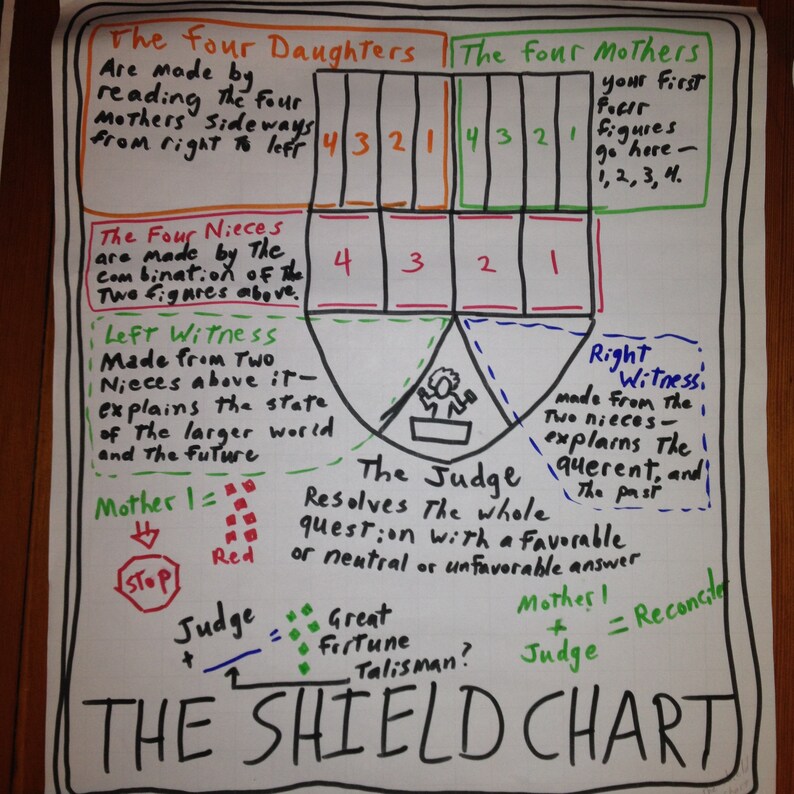 The Four Daughters
Are made by
reading The Four
Mothers sideways
from right to left
4 3 2 1
The Four Mothers
4 3 2 1
your first
four
figures
go here —
1, 2, 3, 4.
The Four Nieces
are made by The
combination of the
Two figures above.
4 3 2 1
Left Witness
Made from Two
Nieces above it —
explains the state
of The larger world
and The future
Right
Witness
made from the
Two nieces —
explains The
querent, and
The past
The Judge
Resolves The whole
question with a favorable
or neutral or unfavorable answer
Mother 1 =
Red
STOP
Judge
+ =
Great
Fortune
Talisman?
Mother 1
+
Judge
= Reconciler
THE SHIELD CHART